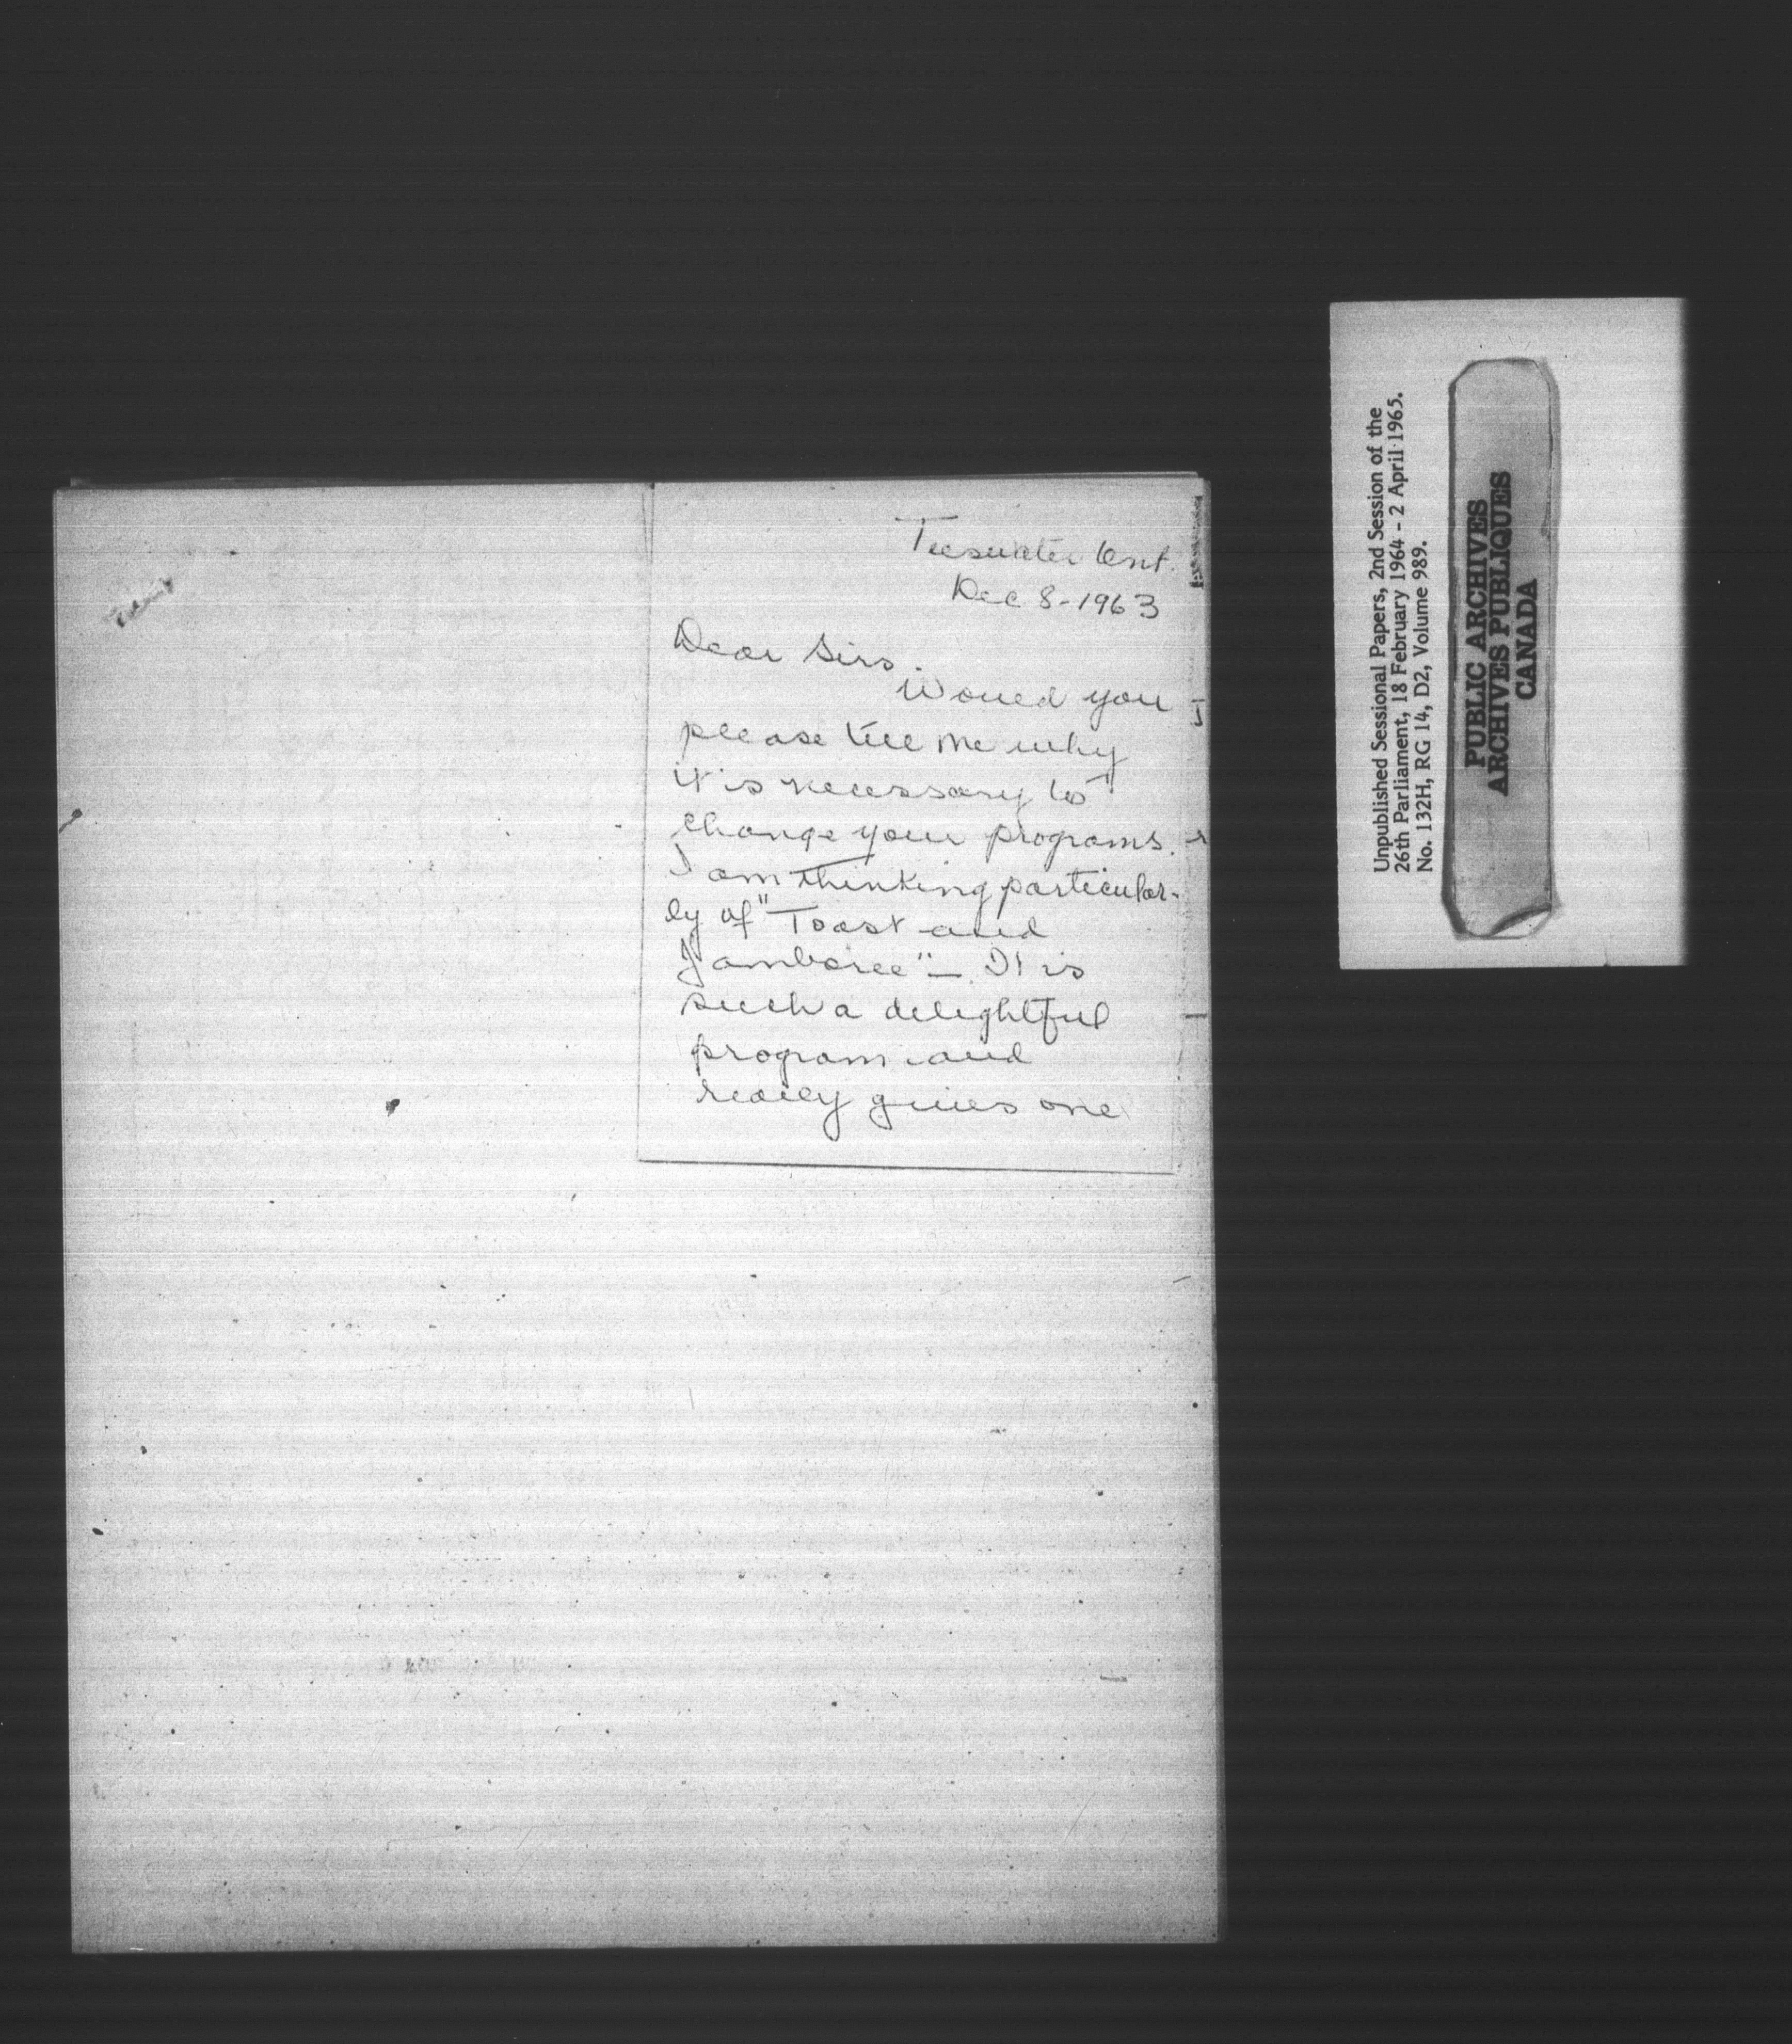 Teeswater Ont.
Dec 8-1963
Dear Sirs.
Would you
please tell me why
it is necessary to
change your programs.
I am thinking particular-
ly of "Toast and
Jamboree" — It is
such a delightful
program and
really gives one
Unpublished Sessional Papers, 2nd Session of the
26th Parliament, 18 February 1964 - 2 April 1965.
No. 132H, RG 14, D2, Volume 989.
PUBLIC ARCHIVES
ARCHIVES PUBLIQUES
CANADA